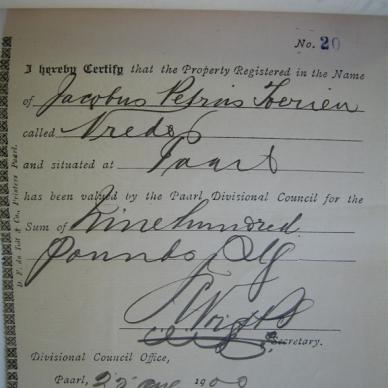 No. 20
I hereby Certify that the Property Registered in the Name
of Jacobus Petrus Therien
called Vrede
and situated at Paarl
has been valued by the Paarl Divisional Council for the
Sum of Nine hundred
pounds Stg
J Wright
Secretary.
Divisional Council Office,
Paarl, 22 1900
D. F. du Toit & Co., Printers Paarl.